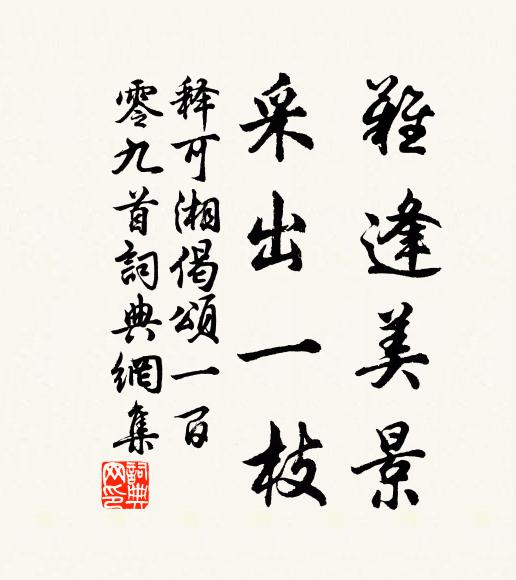 難逢美景
采出一枝
释可湘偈頌一百
零九首詞典網集
詞典网印